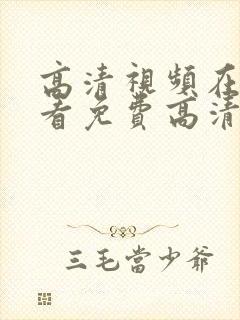 高清視頻在
看免費高清
三毛當少爺